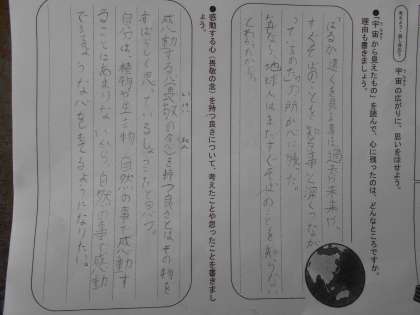 考えよう・話し合おう
宇宙の広がりに、思いをはせよう。
●「宇宙から見えたもの」を読んで、心に残ったのは、どんなところですか。
理由も書きましょう。
「はるか遠くを見る事は、過去や未来や、
すぐそばのことを
っている」の所が心に残った。
なぜなら、地球人はまだすぐそばのことを知らない
●感動する心(畏敬の念)を持つ良さについて、考えたことや思ったことを書きまし
ょう。
いけい ねん
感動する心(畏敬の念)を持つ良さとは、その物を
すばらしく思っている
自分は、植物や生き物、自然の事で感動す
ることはあまりないから、自然の事で感動
できるような心をもてるようになりたい。